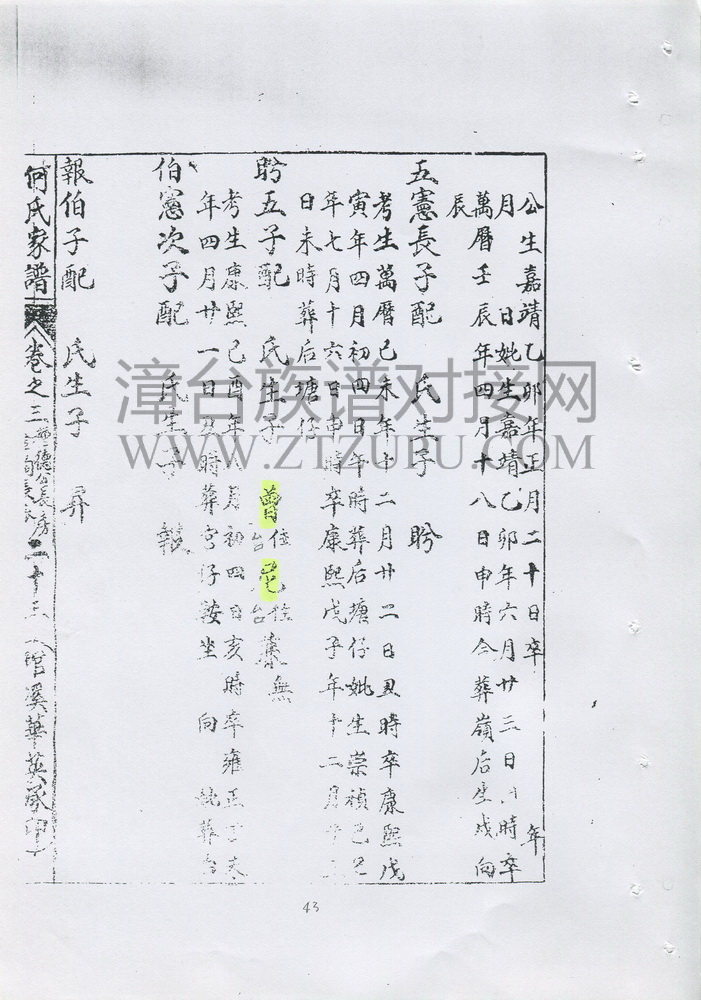 公生嘉靖乙卯年正月二十日卒 年
月 日妣生嘉靖乙卯年六月廿三日 時卒
萬曆壬辰年四月十八日申時合葬嶺后坐戌向
辰
五憲長子配 氏生子 盻
考生萬曆己未年十二月廿二日丑時卒康熙戊
寅年四月初四日午時葬后塘仔妣生崇禎己巳
年七月十六日申時卒康熙戊子年十二月十
日未時葬后塘仔
盻五子配 氏生子 曾 住台 住台 無
考生康熙己酉年 月初四日亥時卒雍正丁未
年四月廿一日 時葬宮仔鞍坐 向 妣葬
伯憲次子配 氏生子 報
報伯子配 氏生子 昇
何氏家譜 卷之三 二十三
漳台族谱对接网
WWW.ZTZUPU.COM
43